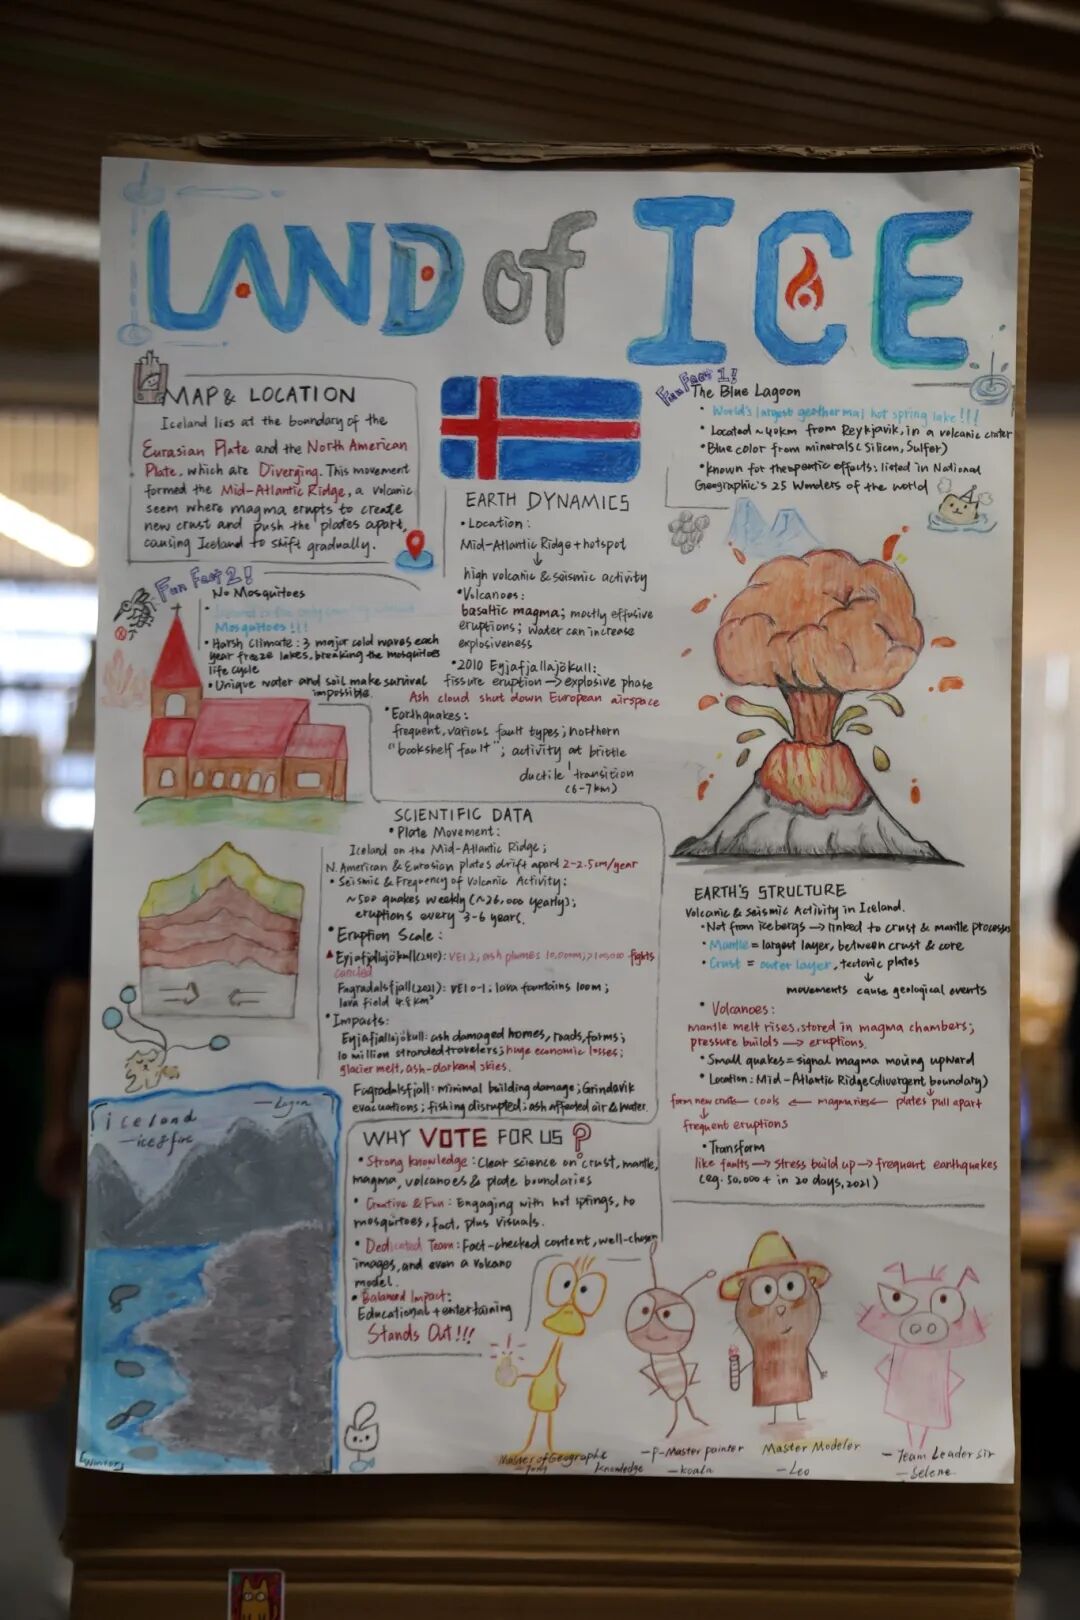 LAND of ICE
MAP & LOCATION
Iceland lies at the boundary of the
Eurasian Plate and the North American
Plate, which are Diverging. This movement
formed the Mid-Atlantic Ridge, a volcanic
seem where magma erupts to create
new crust and push the plates apart,
causing Iceland to shift gradually.
Fun Fact 2!
No Mosquitoes
Mosquitoes!!!
• Harsh Climate: 3 major cold waves each
year freeze lakes, breaking the mosquitoes
life cycle
• Unique water and soil make survival
impossible.
EARTH DYNAMICS
• Location:
Mid-Atlantic Ridge + hotspot
↓
high volcanic & seismic activity
• Volcanoes:
basaltic magma; mostly effusive
eruptions; water can increase
explosiveness
• 2010 Eyjafjallajökull:
fissure eruption → explosive phase
Ash cloud shut down European airspace
• Earthquakes:
frequent, various fault types; northern
"bookshelf fault"; activity at brittle
ductile transition
(6-7km)
Fun Fact 1!
The Blue Lagoon
• World's largest geothermal hot spring lake!!!
• Located ~40km from Reykjavik, in a volcanic crater
• Blue color from minerals (Silicon, Sulfer)
• known for theapeutic effects: listed in National
Geographic's 25 Wonders of the world
SCIENTIFIC DATA
• Plate Movement:
Iceland on the Mid-Atlantic Ridge;
N. American & Eurasian plates drift apart 2-2.5cm/year
• Seismic & Frequency of Volcanic Activity:
~500 quakes weekly (~26,000 yearly);
eruptions every 3-6 years.
• Eruption Scale:
VEI 2; ash plumes 10,000m; >100,000 fights
cancled
Fagradalsfjall (2021): VEI 0-1; lava fountains 100m;
lava field 4.8km²
• Impacts:
Eyjafjallajökull: ash damaged homes, roads, farms;
10 million stranded travelers; huge economic losses;
glacier melt, ash-darkend skies.
Fagradalsfjall: minimal building damage; Grindavik
evacuations; fishing disrupted; ash affected air & water.
EARTH'S STRUCTURE
Volcanic & Seismic Activity in Iceland.
• Not from icebergs → linked to crust & mantle processes
• Mantle = largest layer, between crust & core
• Crust = outer layer, tectonic plates
↓
movements cause geological events
• Volcanoes:
mantle melt rises, stored in magma chambers;
pressure builds → eruptions.
• Small quakes = signal magma moving upward
• Location: Mid-Atlantic Ridge (divergent boundary)
↓
form new crust ← cools ← magma rises ← plates pull apart
↓
frequent eruptions
• Transform
like faults → stress build up → frequent earthquakes
(eg. 50,000+ in 20 days, 2021)
iceland
— ice & fire
[Winter]
WHY VOTE FOR US ?
• Strong knowledge: Clear science on crust, mantle,
magma, volcanoes & plate boundaries
• Creative & Fun: Engaging with hot springs, no
mosquitoes, fact, plus visuals.
• Dedicated Team: Fact-checked content, well-chosen
images, and even a volcano
model.
• Balanced Impact:
Educational + entertaining
Stands Out!!!
Master of Geographt
knowledge
— P-Master painter
— koala
Master Modeler
— Leo
— Team Leader sir
— Selene